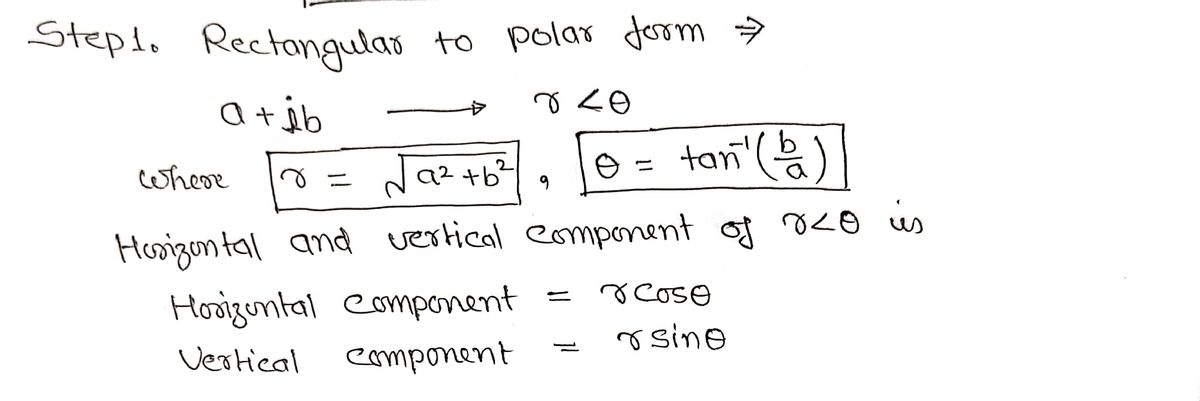 Step1. Rectangular to polar form ⇒
a + ib → r < θ
where r = √a² + b² , θ = tan⁻¹(b/a)
Horizontal and vertical component of r < θ is
Horizontal component = r cosθ
Vertical component = r sinθ